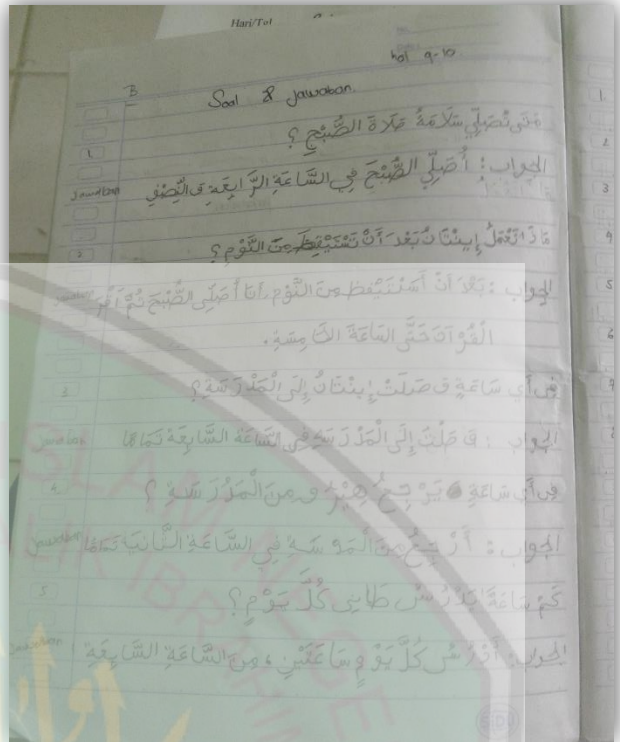 Hari/Tgl
hal 9-10
B
Soal & Jawaban.
1 مَتَى تُصَلِّي سَلَامَةُ صَلَاةَ الصُّبْحِ ؟
Jawaban الجواب : أُصَلِّي الصُّبْحَ فِي السَّاعَةِ الرَّابِعَةِ وَ النِّصْفِ
2 مَاذَا تَعْمَلُ إِينْتَانُ بَعْدَ أَنْ تَسْتَيْقِظَ مِنَ النَّوْمِ ؟
Jawaban الجواب : بَعْدَ أَنْ أَسْتَيْقِظ مِنَ النَّوْمِ، أَنَا أُصَلِّى الصُّبْحَ ثُمَّ أَقْرَ
الْقُرْآنَ حَتَّى السَّاعَةَ الخَامِسَةِ.
3 فِى أَي سَاعَةٍ وَصَلَتْ إِينْتَانُ إِلَى الْمَدْرَسَةِ ؟
Jawaban الجواب : وَصَلْتُ إِلَى الْمَدْرَسَةِ فِى السَّاعَةِ السَّابِعَةِ تَمَامًا
4 فِى أَي سَاعَةٍ يَرْجِعُ مِنَ الْمَدْرَسَةِ ؟
Jawaban الجواب : أَرْجِعُ مِنَ الْمَدْرَسَةِ فِي السَّاعَةِ الثَّانِيَةِ تَمَامًا
5 كَمْ سَاعَةً يَدْرُسُ كُلَّ يَوْمٍ ؟
Jawaban الجواب : أَدْرُسُ كُلَّ يَوْمٍ سَاعَتَيْنِ ، مِنَ السَّاعَةِ السَّابِعَةِ
1
2
3
4
5
6
7
8
ISLAM NEGE
LIK IBRAHIM
SIDU